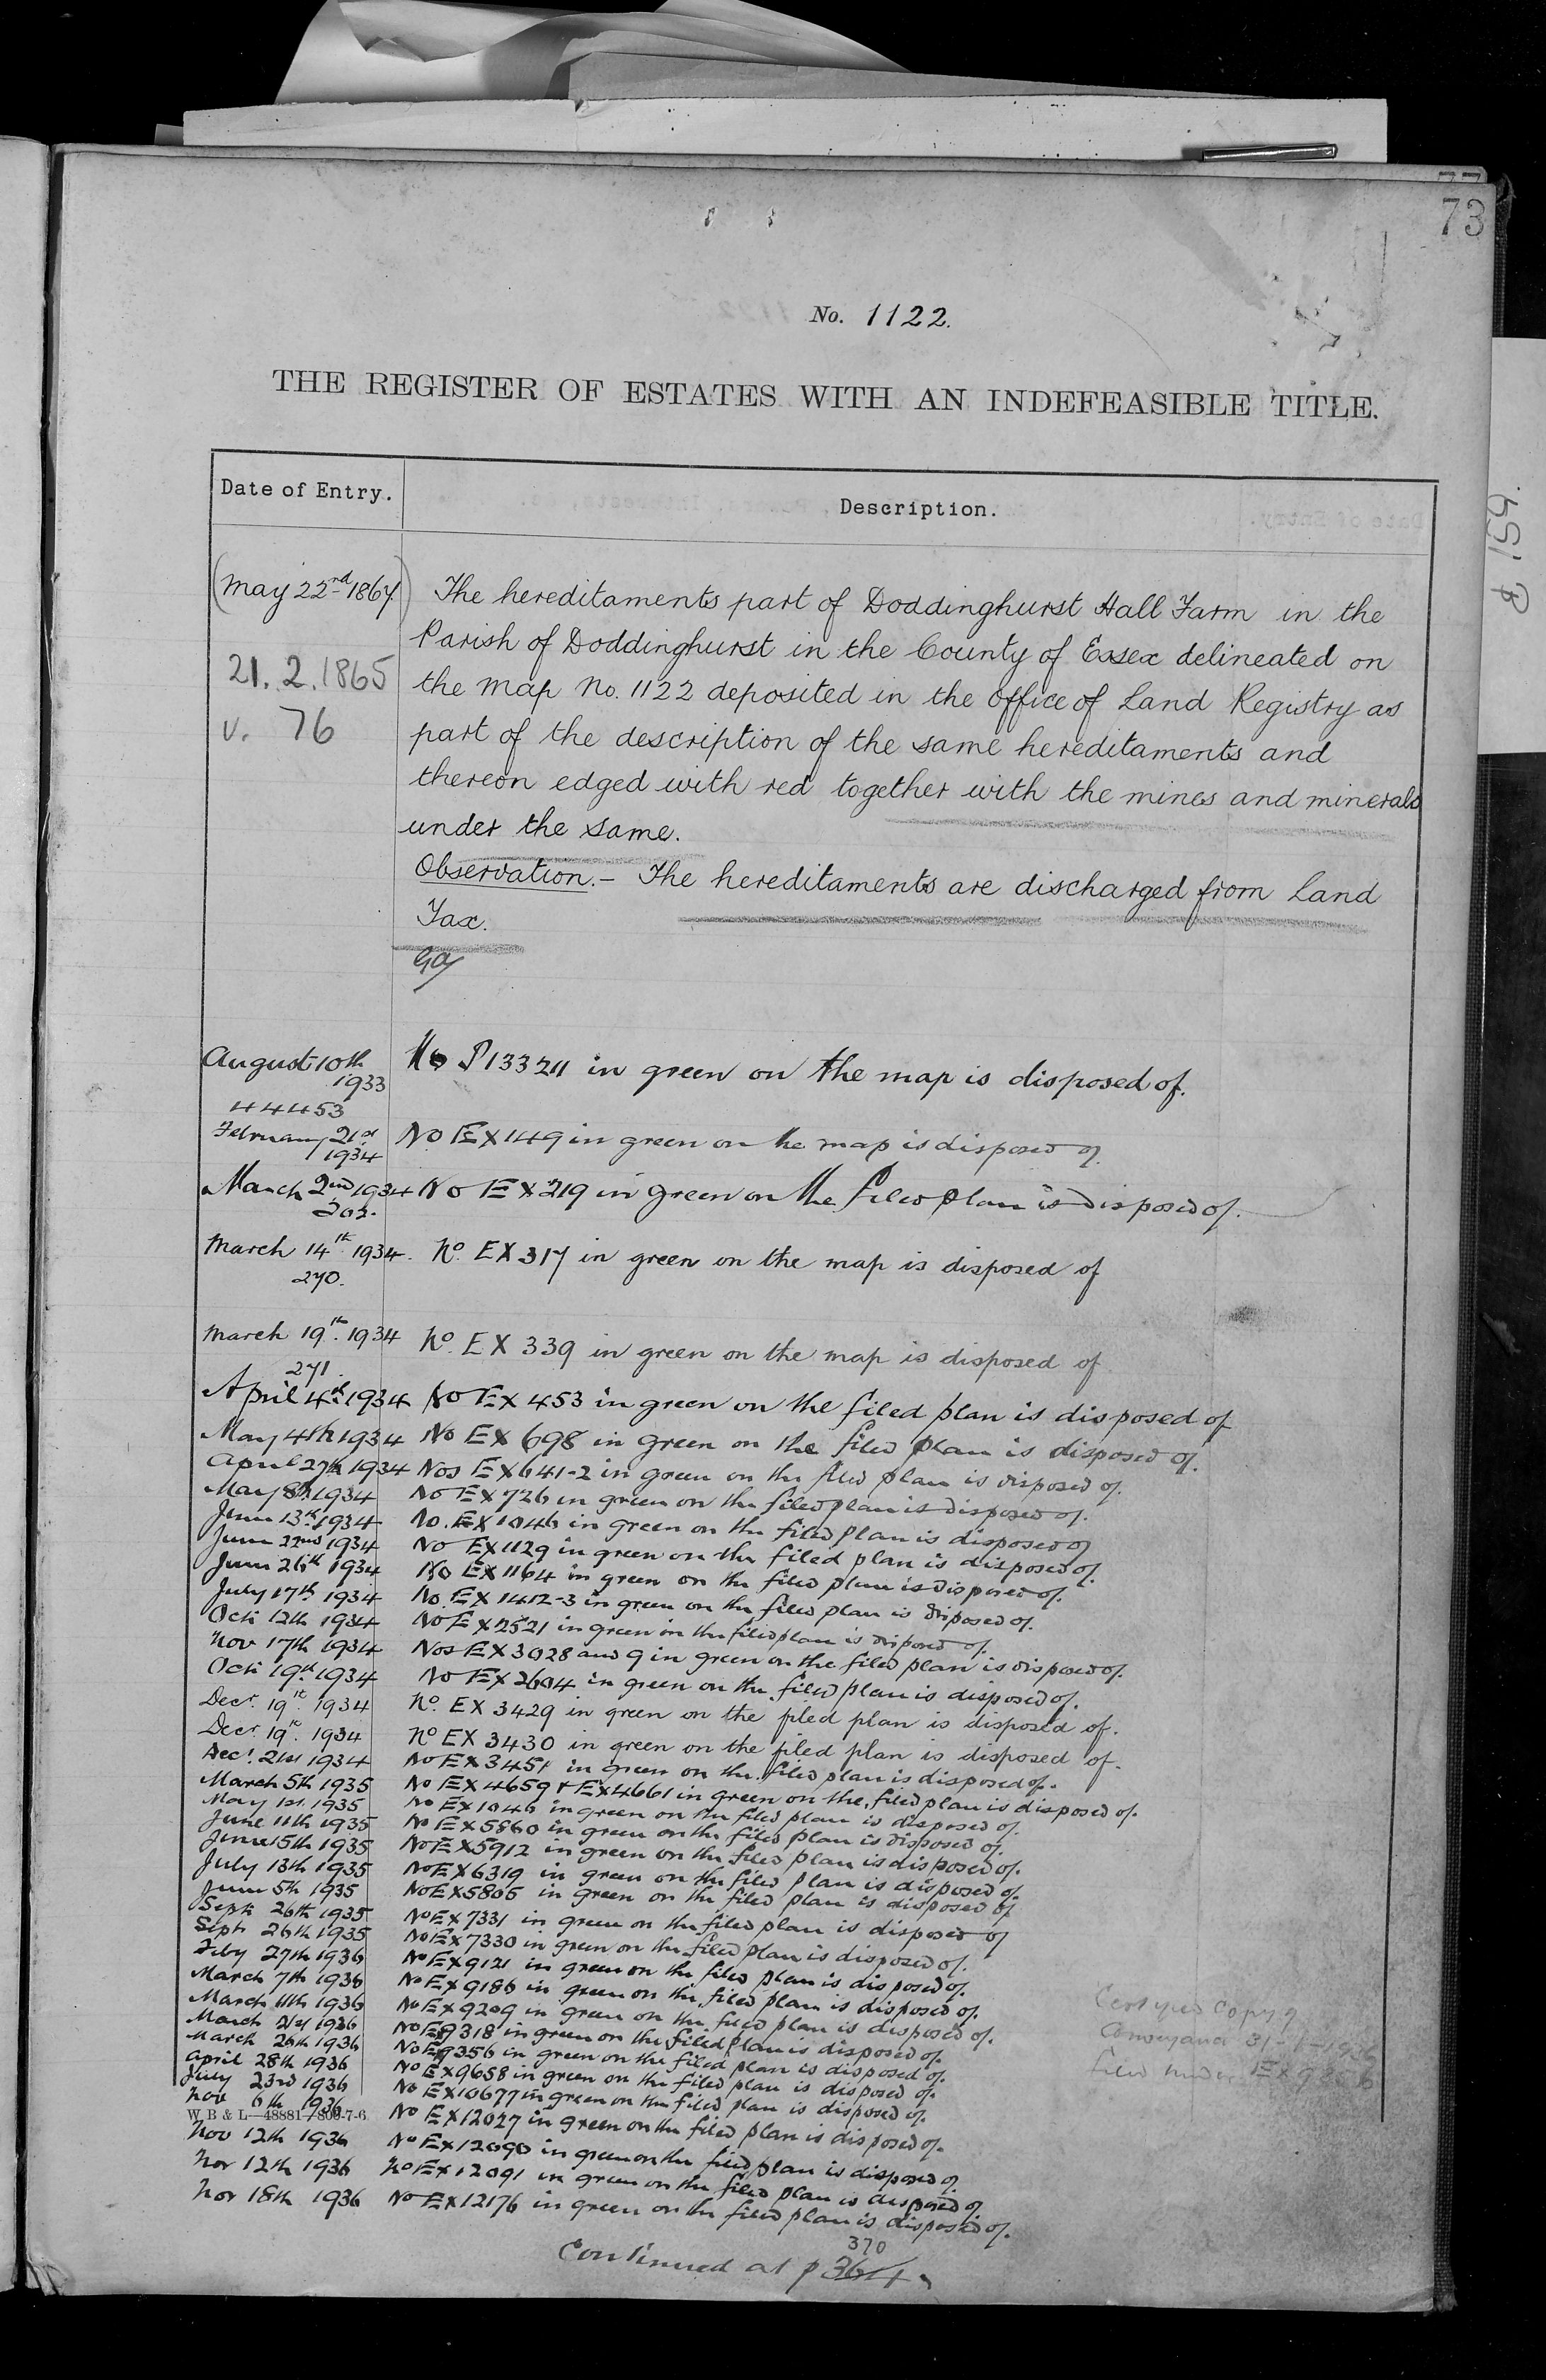 73
No. 1122.
THE REGISTER OF ESTATES WITH AN INDEFEASIBLE TITLE.
Date of Entry. Description.
(May 22nd 1867) The hereditaments part of Doddinghurst Hall Farm in the
Parish of Doddinghurst in the County of Essex delineated on
21. 2. 1865 the Map No. 1122 deposited in the Office of Land Registry as
v. 76 part of the description of the same hereditaments and
thereon edged with red together with the mines and minerals
under the same.
Observation.- The hereditaments are discharged from Land
Tax.
P 159.
August 10th 1933 No P133211 in green on the map is disposed of.
44453
February 21st 1934 No EX149 in green on the map is disposed of.
March 2nd 1934 No EX219 in green on the filed plan is disposed of.
202.
March 14th 1934. No. EX317 in green on the map is disposed of
270.
March 19th. 1934 No. EX 339 in green on the map is disposed of
271.
April 4th 1934 No EX 453 in green on the filed plan is disposed of
May 4th 1934 No EX 698 in green on the filed plan is disposed of.
April 27th 1934 Nos EX641-2 in green on the filed plan is disposed of.
May 8th 1934 No EX726 in green on the filed plan is disposed of.
June 13th 1934 No. EX1046 in green on the filed plan is disposed of
June 22nd 1934 No EX1129 in green on the filed plan is disposed of.
June 26th 1934 No EX1164 in green on the filed plan is disposed of.
July 17th 1934 No. EX1412-3 in green on the filed plan is disposed of.
Oct 12th 1934 No EX2521 in green on the filed plan is disposed of.
Nov 17th 1934 Nos EX3028 and 9 in green on the filed plan is disposed of.
Oct 19th 1934 No EX2604 in green on the filed plan is disposed of.
Decr. 19th. 1934 No. EX 3429 in green on the filed plan is disposed of.
Decr. 19th. 1934 No EX 3430 in green on the filed plan is disposed of.
Decr. 21st 1934 No EX3451 in green on the filed plan is disposed of.
March 5th 1935 No EX4659 & EX4661 in green on the filed plan is disposed of.
May 1st 1935 No EX1046 in green on the filed plan is disposed of.
June 11th 1935 No EX5860 in green on the filed plan is disposed of.
June 15th 1935 No EX5912 in green on the filed plan is disposed of.
July 13th 1935 No EX6319 in green on the filed plan is disposed of.
June 5th 1935 No EX5805 in green on the filed plan is disposed of
Sept 26th 1935 No EX7331 in green on the filed plan is disposed of
Sept 26th 1935 No EX7330 in green on the filed plan is disposed of.
Feby 27th 1936 No EX9121 in green on the filed plan is disposed of.
March 7th 1936 No EX9186 in green on the filed plan is disposed of.
March 11th 1936 No EX9209 in green on the filed plan is disposed of.
March 21st 1936 No EX9318 in green on the filed plan is disposed of.
March 26th 1936 No EX9356 in green on the filed plan is disposed of.
April 28th 1936 No EX9658 in green on the filed plan is disposed of.
July 23rd 1936 No EX10677 in green on the filed plan is disposed of.
Nov 6th 1936 No EX12027 in green on the filed plan is disposed of.
W B & L—48881—800-7-6
Nov 12th 1936 No EX12090 in green on the filed plan is disposed of
Nov 12th 1936 No EX12091 in green on the filed plan is disposed of
Nov 18th 1936 No EX12176 in green on the filed plan is disposed of.
Certified Copy of
Conveyance
filed under
370
Continued at p 364